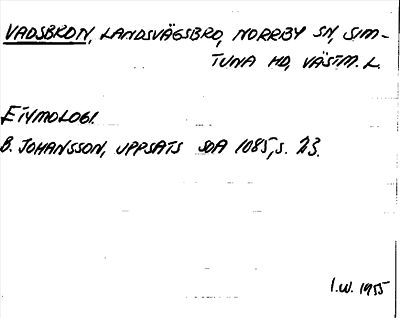 VADSBRON, LANDSVÄGSBRO, NORRBY SN, SIM-
TUNA HD, VÄSTM. L.
ETYMOLOGI.
B. JOHANSSON, UPPSATS SOA 1085, S. 23.
I.W. 1955